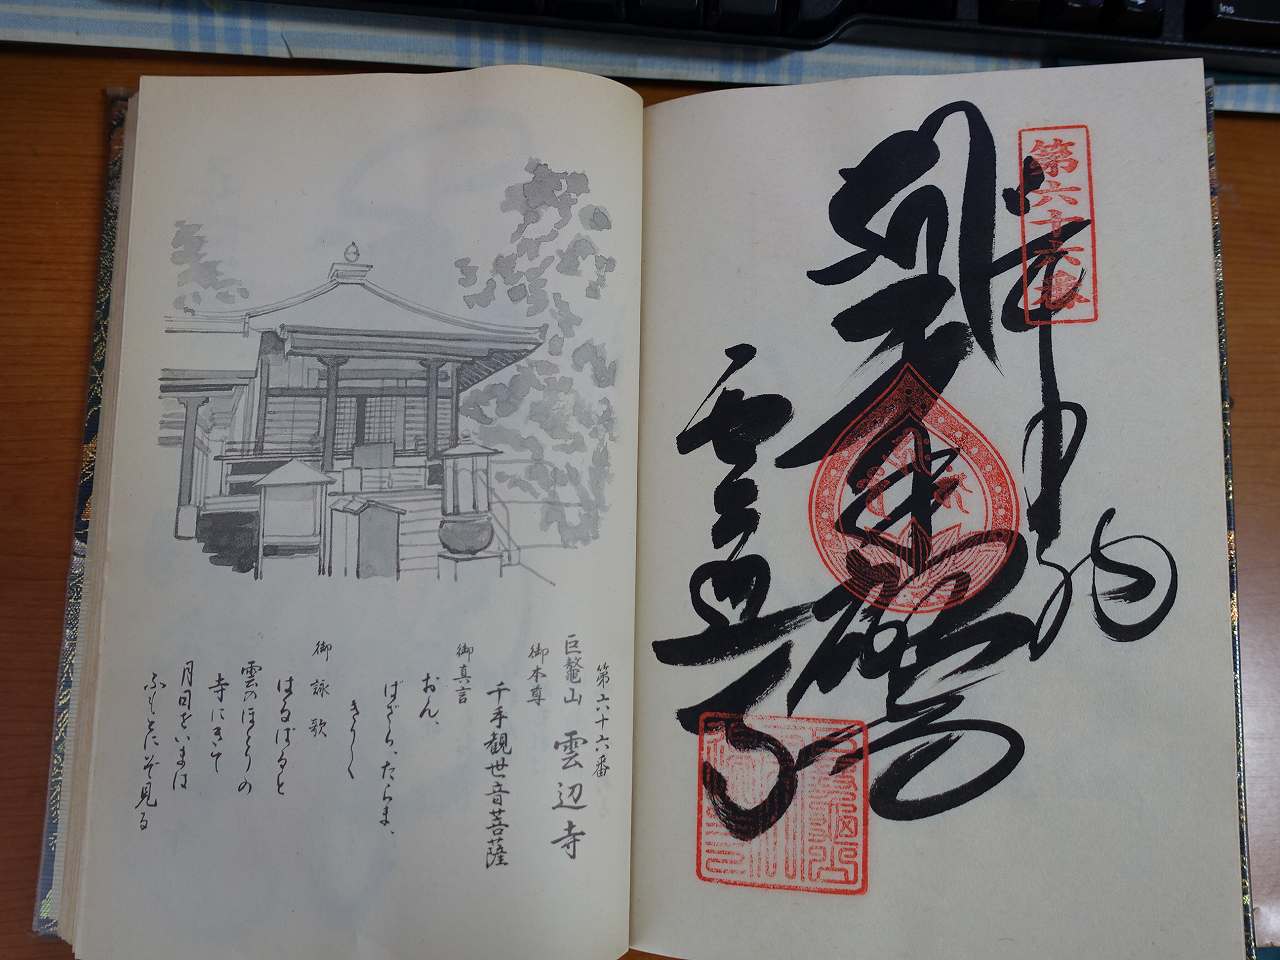 第六十六番
奉納
雲辺寺
第六十六番
巨鼇山 雲辺寺
御本尊
千手観世音菩薩
御真言
おん、
ばざら、たらま、
きりく
御詠歌
はるばると
雲のほとりの
寺にきて
月日をいまは
ふもとにぞ見る
Ins